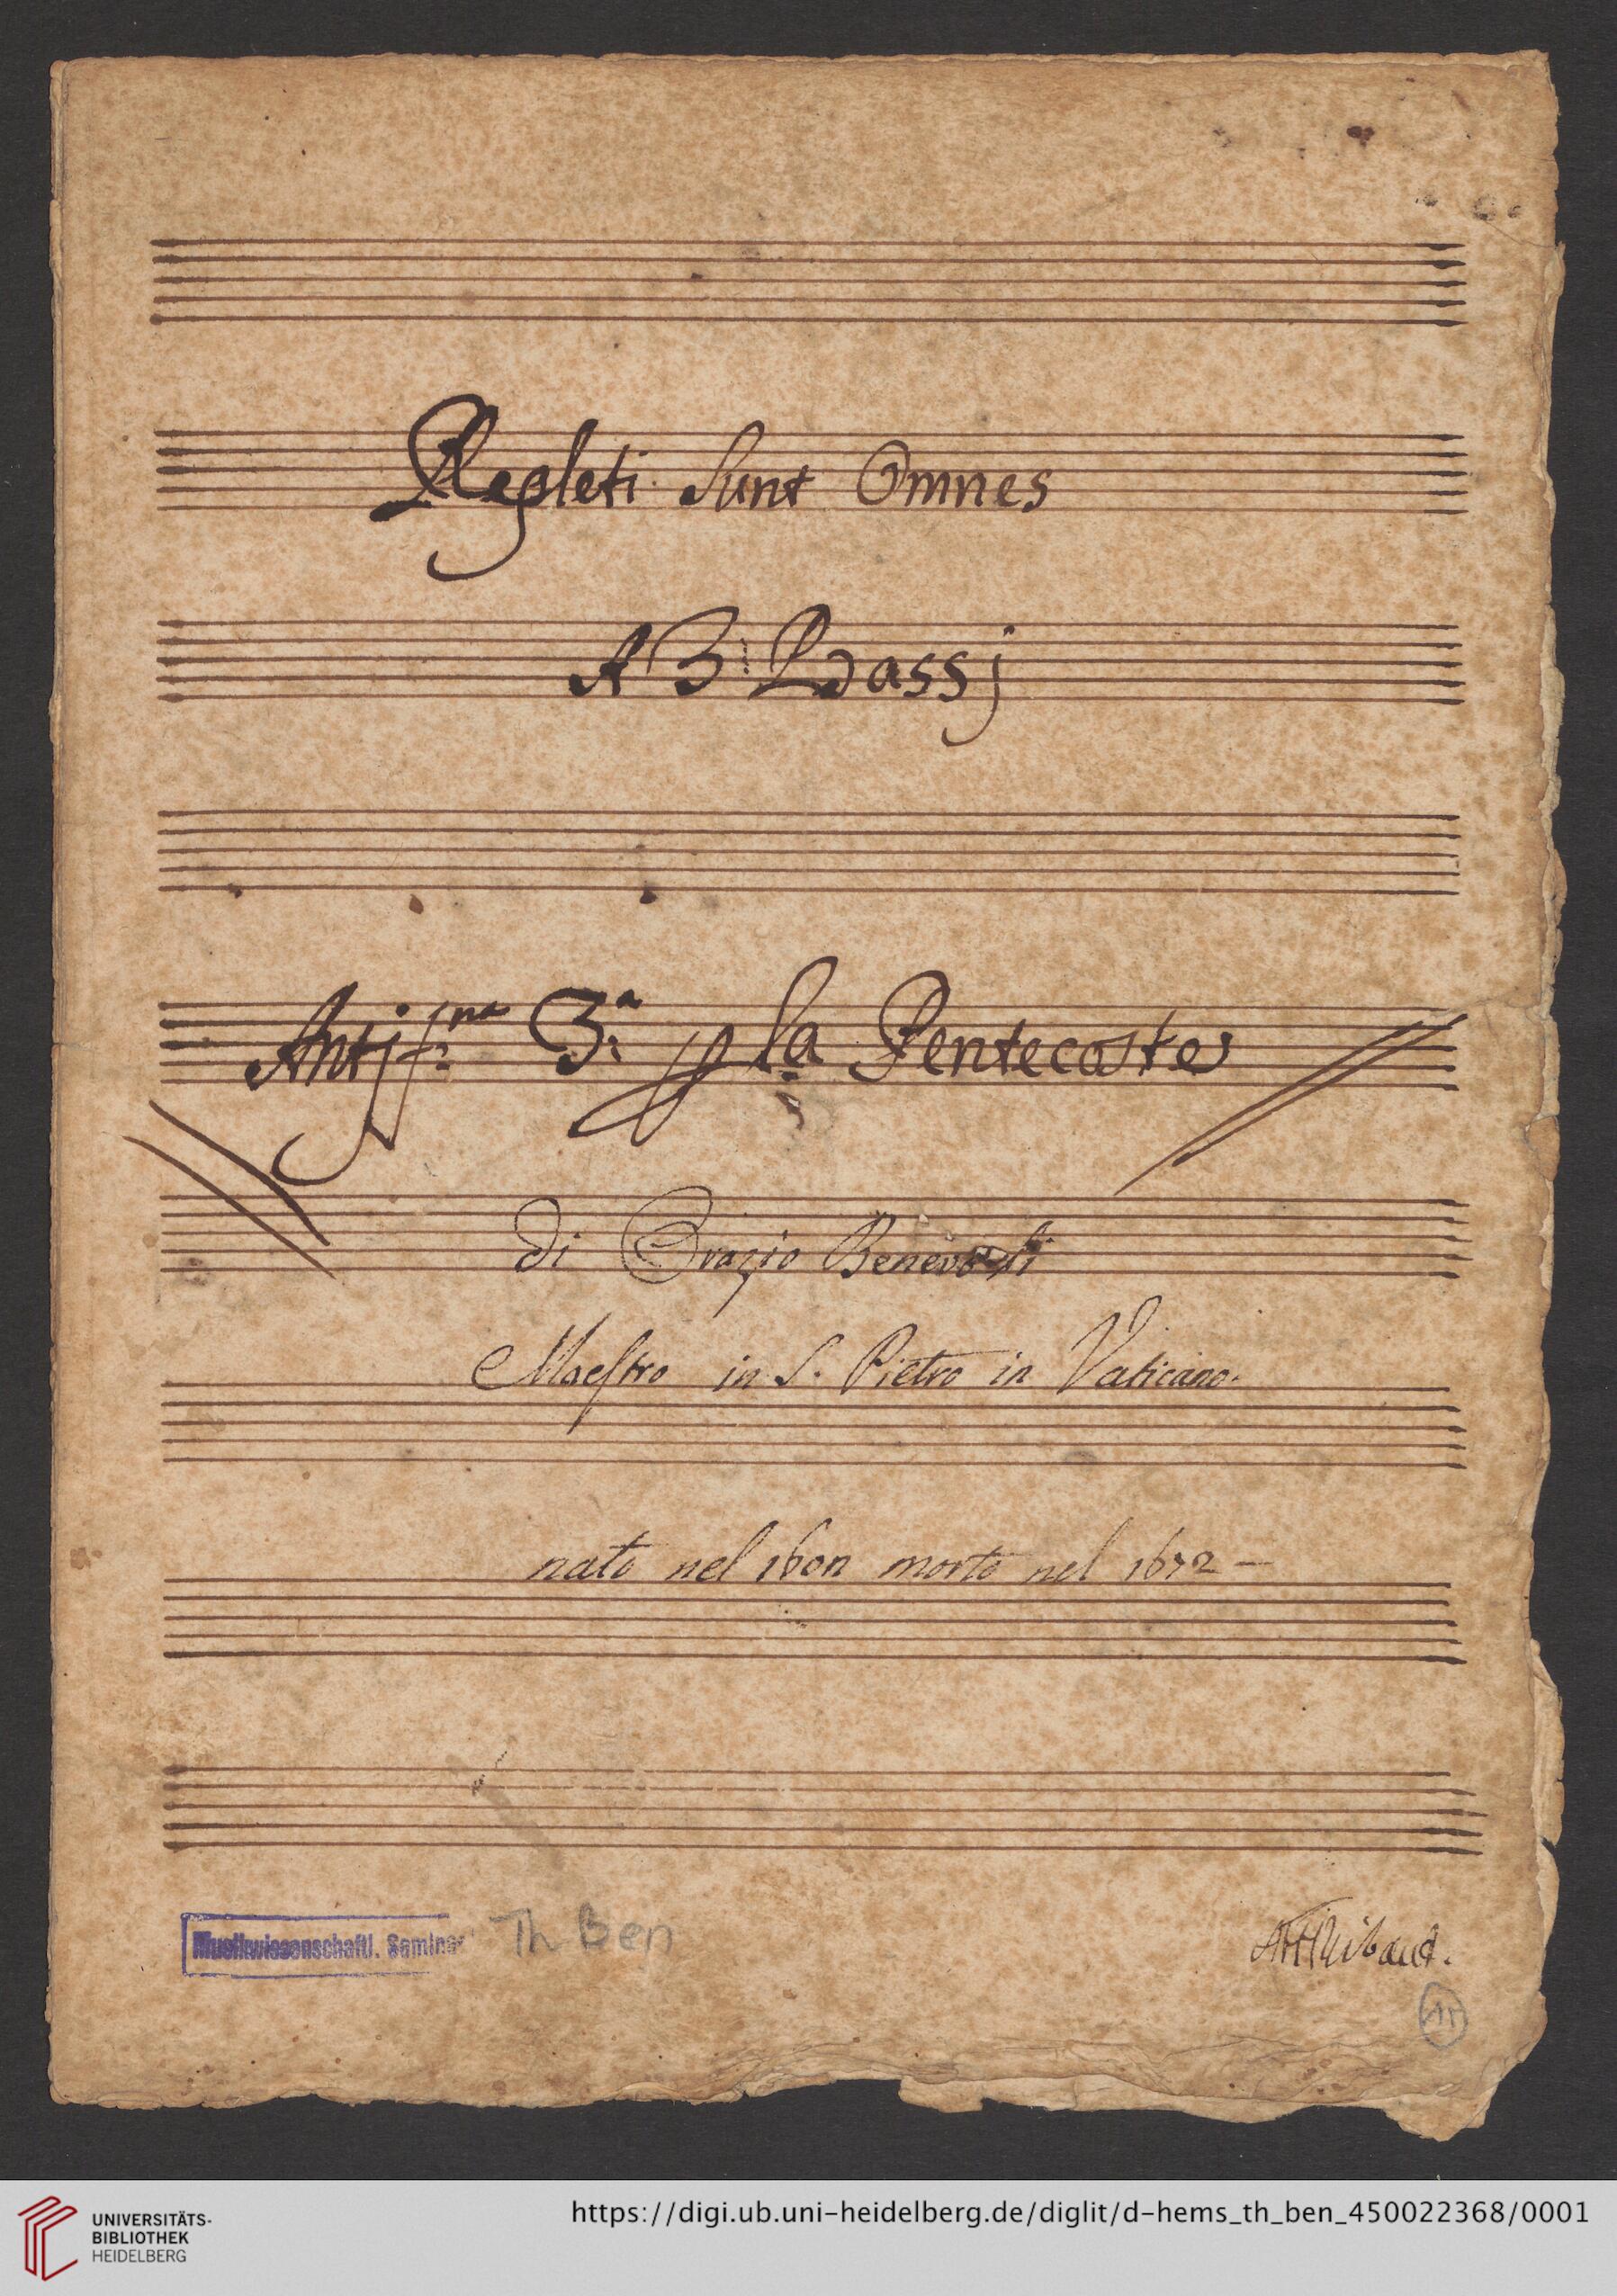 Repleti Sunt Omnes
A 3 Bassj
Antjf.na 3.a p la Pentecoste
di Orazio Benevoli
Maestro in S. Pietro in Vaticano.
nato nel 1602 morto nel 1672 —
Musikwissenschaftl. Seminar
Th Ben
AFJThibaut.
15
UNIVERSITÄTS-
BIBLIOTHEK
HEIDELBERG
https://digi.ub.uni-heidelberg.de/diglit/d-hems_th_ben_450022368/0001